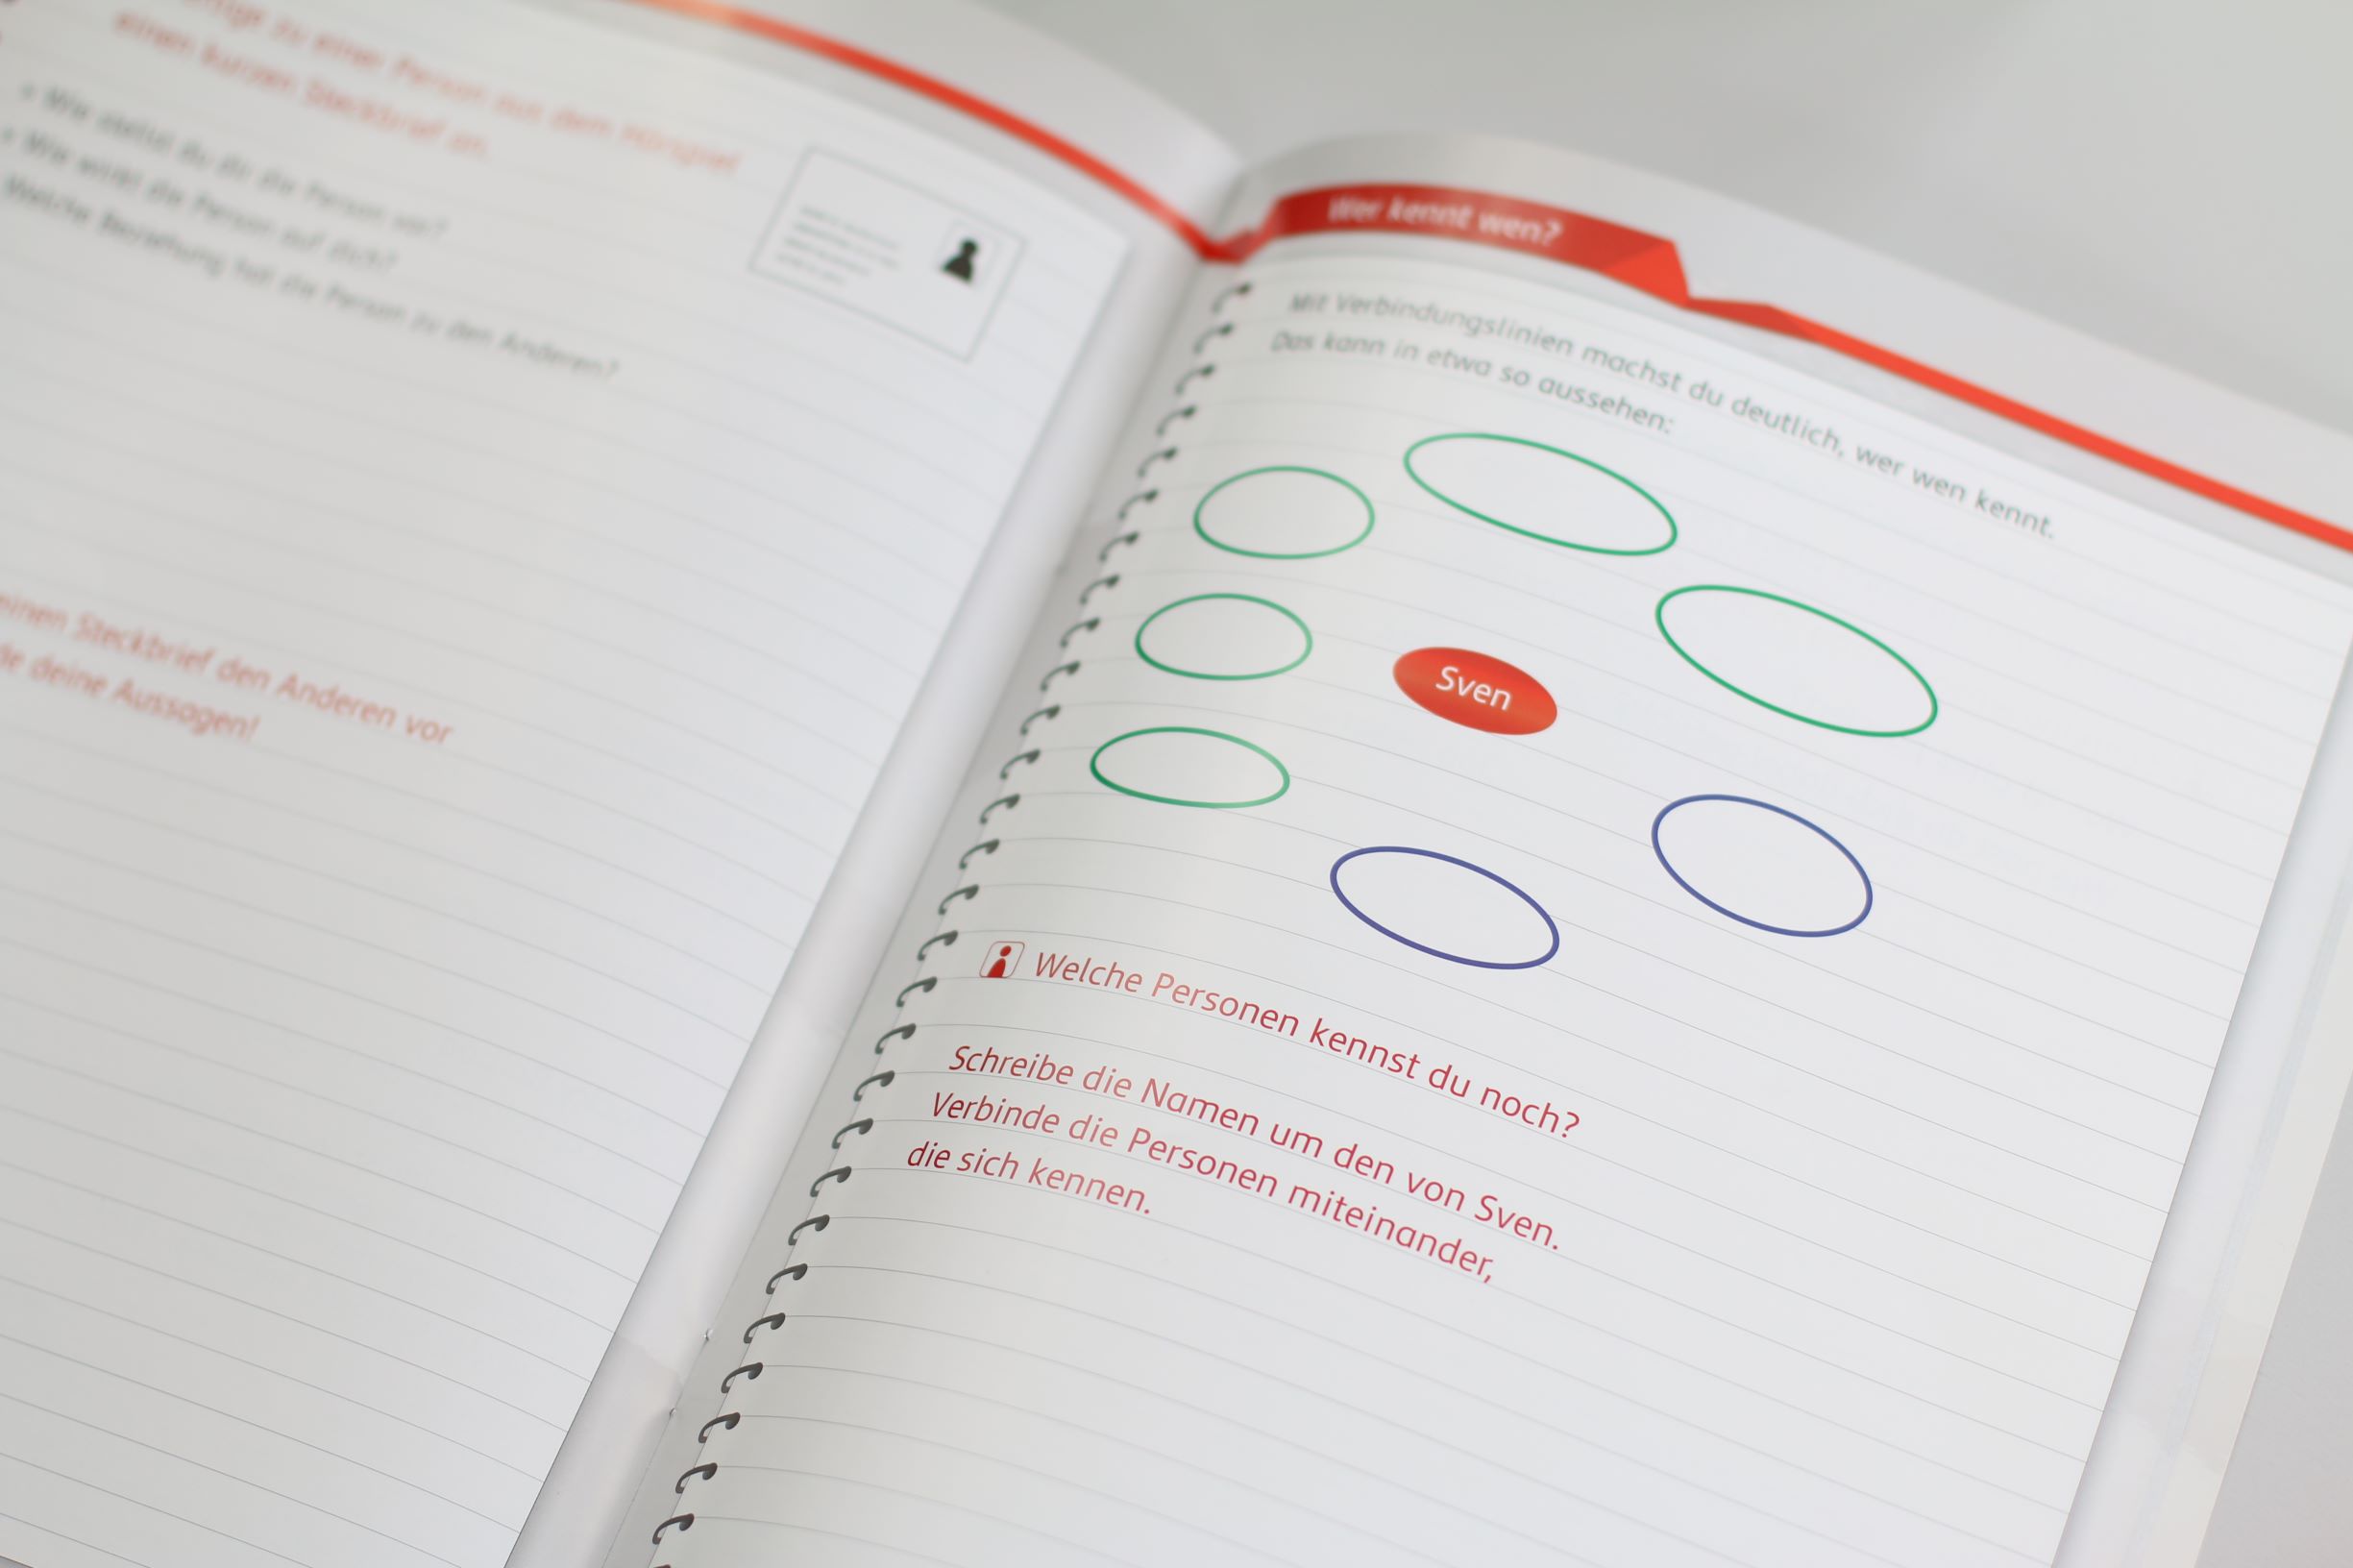 zu einer Person aus dem Hörspiel
einen kurzen Steckbrief an.
Wie stellst du dir die Person vor?
Wie wirkt die Person auf dich?
Welche Beziehung hat die Person zu den Anderen?
einen Steckbrief den Anderen vor
deine Aussagen!
Wer kennt wen?
Mit Verbindungslinien machst du deutlich, wer wen kennt.
Das kann in etwa so aussehen:
Sven
Welche Personen kennst du noch?
Schreibe die Namen um den von Sven.
Verbinde die Personen miteinander,
die sich kennen.